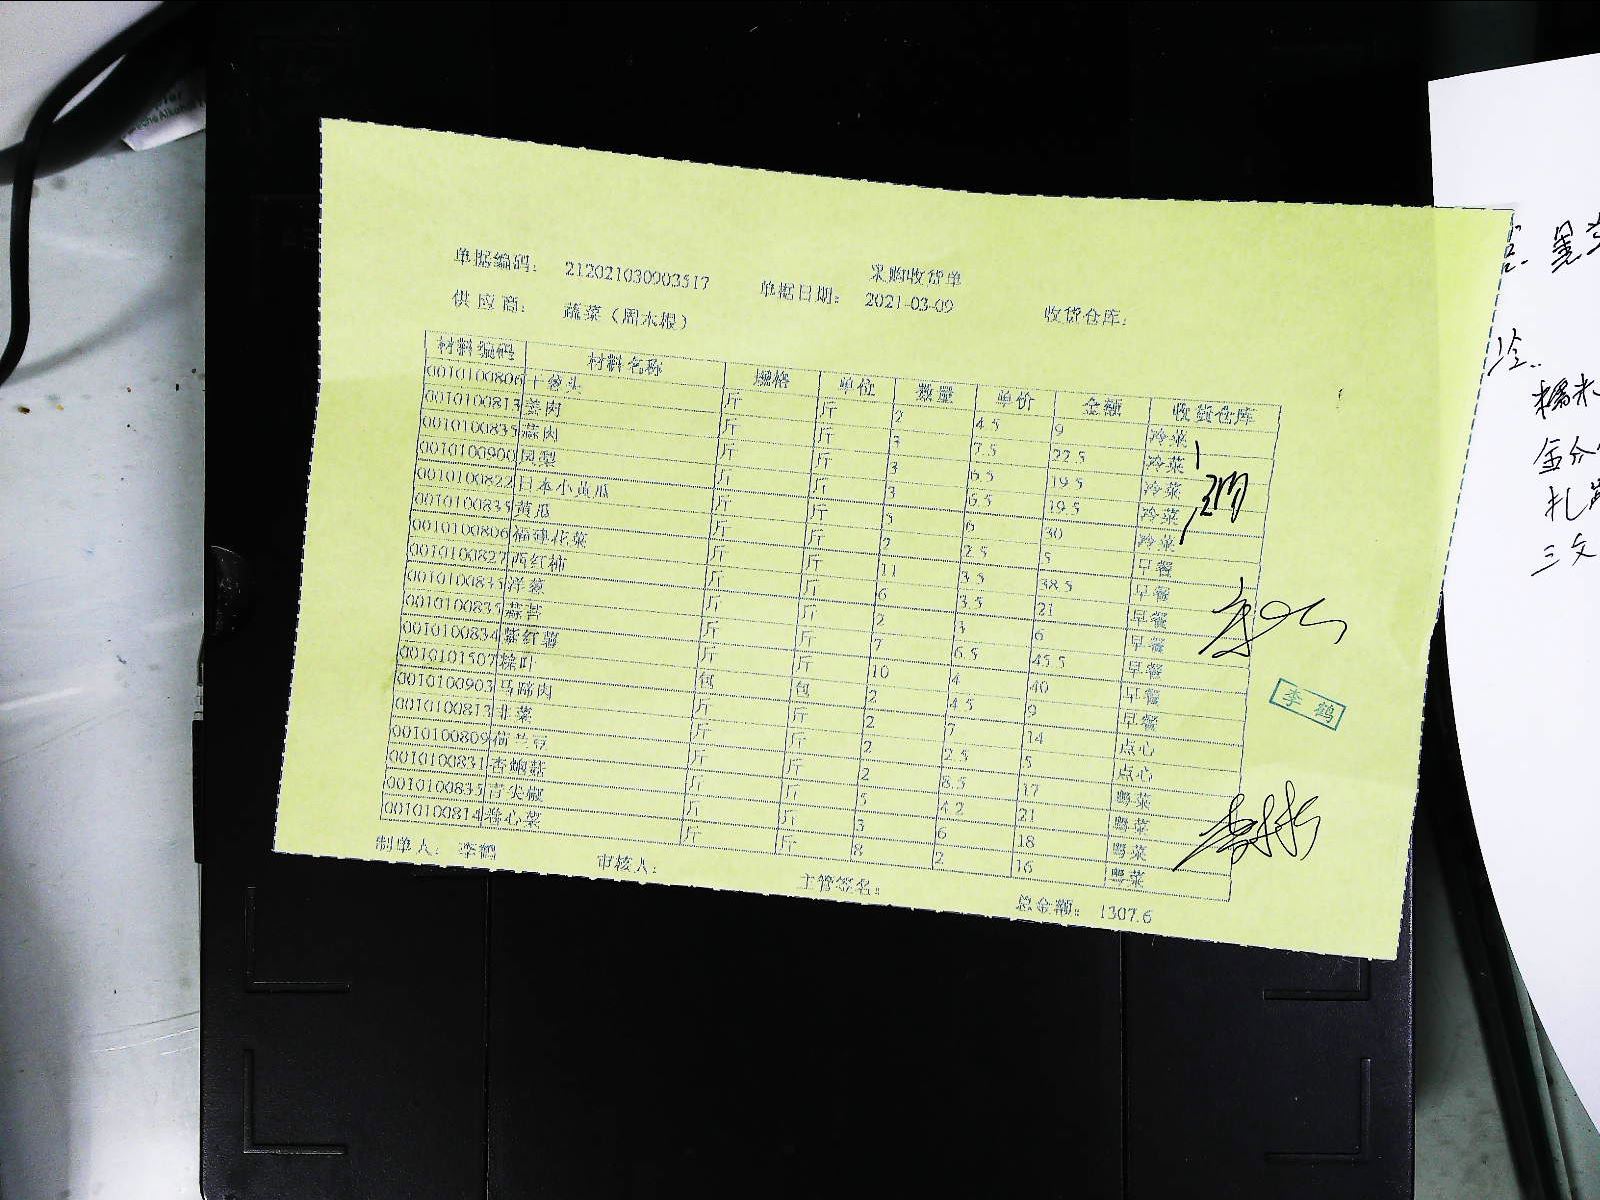 采购收货单
单据编码: 212021030903517 单据日期: 2021-03-09 收货仓库:
供应商: 蔬菜（周木根）
材料编码 材料名称 规格 单位 数量 单价 金额 收货仓库
0010100806 干葱头 斤 斤 2 4.5 9 冷菜
0010100813 姜肉 斤 斤 3 7.5 22.5 冷菜
0010100835 蒜肉 斤 斤 3 6.5 19.5 冷菜
0010100900 凤梨 斤 斤 3 6.5 19.5 冷菜
0010100822 日本小黄瓜 斤 斤 5 6 30 冷菜
0010100835 黄瓜 斤 斤 2 2.5 5 早餐
0010100806 福建花菜 斤 斤 11 3.5 38.5 早餐
0010100827 西红柿 斤 斤 6 3.5 21 早餐
0010100835 洋葱 斤 斤 2 3 6 早餐
0010100835 蒜苔 斤 斤 7 6.5 45.5 早餐
0010100834 紫红薯 斤 斤 10 4 40 早餐
0010101507 粽叶 包 包 2 4.5 9 早餐
0010100903 马蹄肉 斤 斤 2 7 14 点心
0010100813 韭菜 斤 斤 2 2.5 5 点心
0010100809 荷兰豆 斤 斤 2 8.5 17 粤菜
0010100831 杏鲍菇 斤 斤 5 4.2 21 粤菜
0010100835 青尖椒 斤 斤 3 6 18 粤菜
0010100814 卷心菜 斤 斤 8 2 16 粤菜
李鹤
制单人: 李鹤 审核人: 主管签名: 总金额: 1307.6
糯米
三文